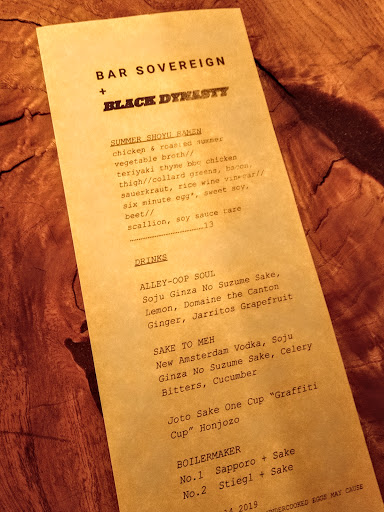 BAR SOVEREIGN
+
BLACK DYNASTY
SUMMER SHOYU RAMEN
chicken & roasted summer
vegetable broth//
teriyaki thyme bbc chicken
thigh//collard greens, bacon,
sauerkraut, rice wine vinegar//
six minute egg*, sweet soy,
beet//
scallion, soy sauce tare
..............................13
DRINKS
ALLEY-OOP SOUL
Soju Ginza No Suzume Sake,
Lemon, Domaine the Canton
Ginger, Jarritos Grapefruit
SAKE TO MEH
New Amsterdam Vodka, Soju
Ginza No Suzume Sake, Celery
Bitters, Cucumber
Joto Sake One Cup "Graffiti
Cup" Honjozo
BOILERMAKER
No.1 Sapporo + Sake
No.2 Stiegl + Sake
2019
UNDERCOOKED EGGS MAY CAUSE